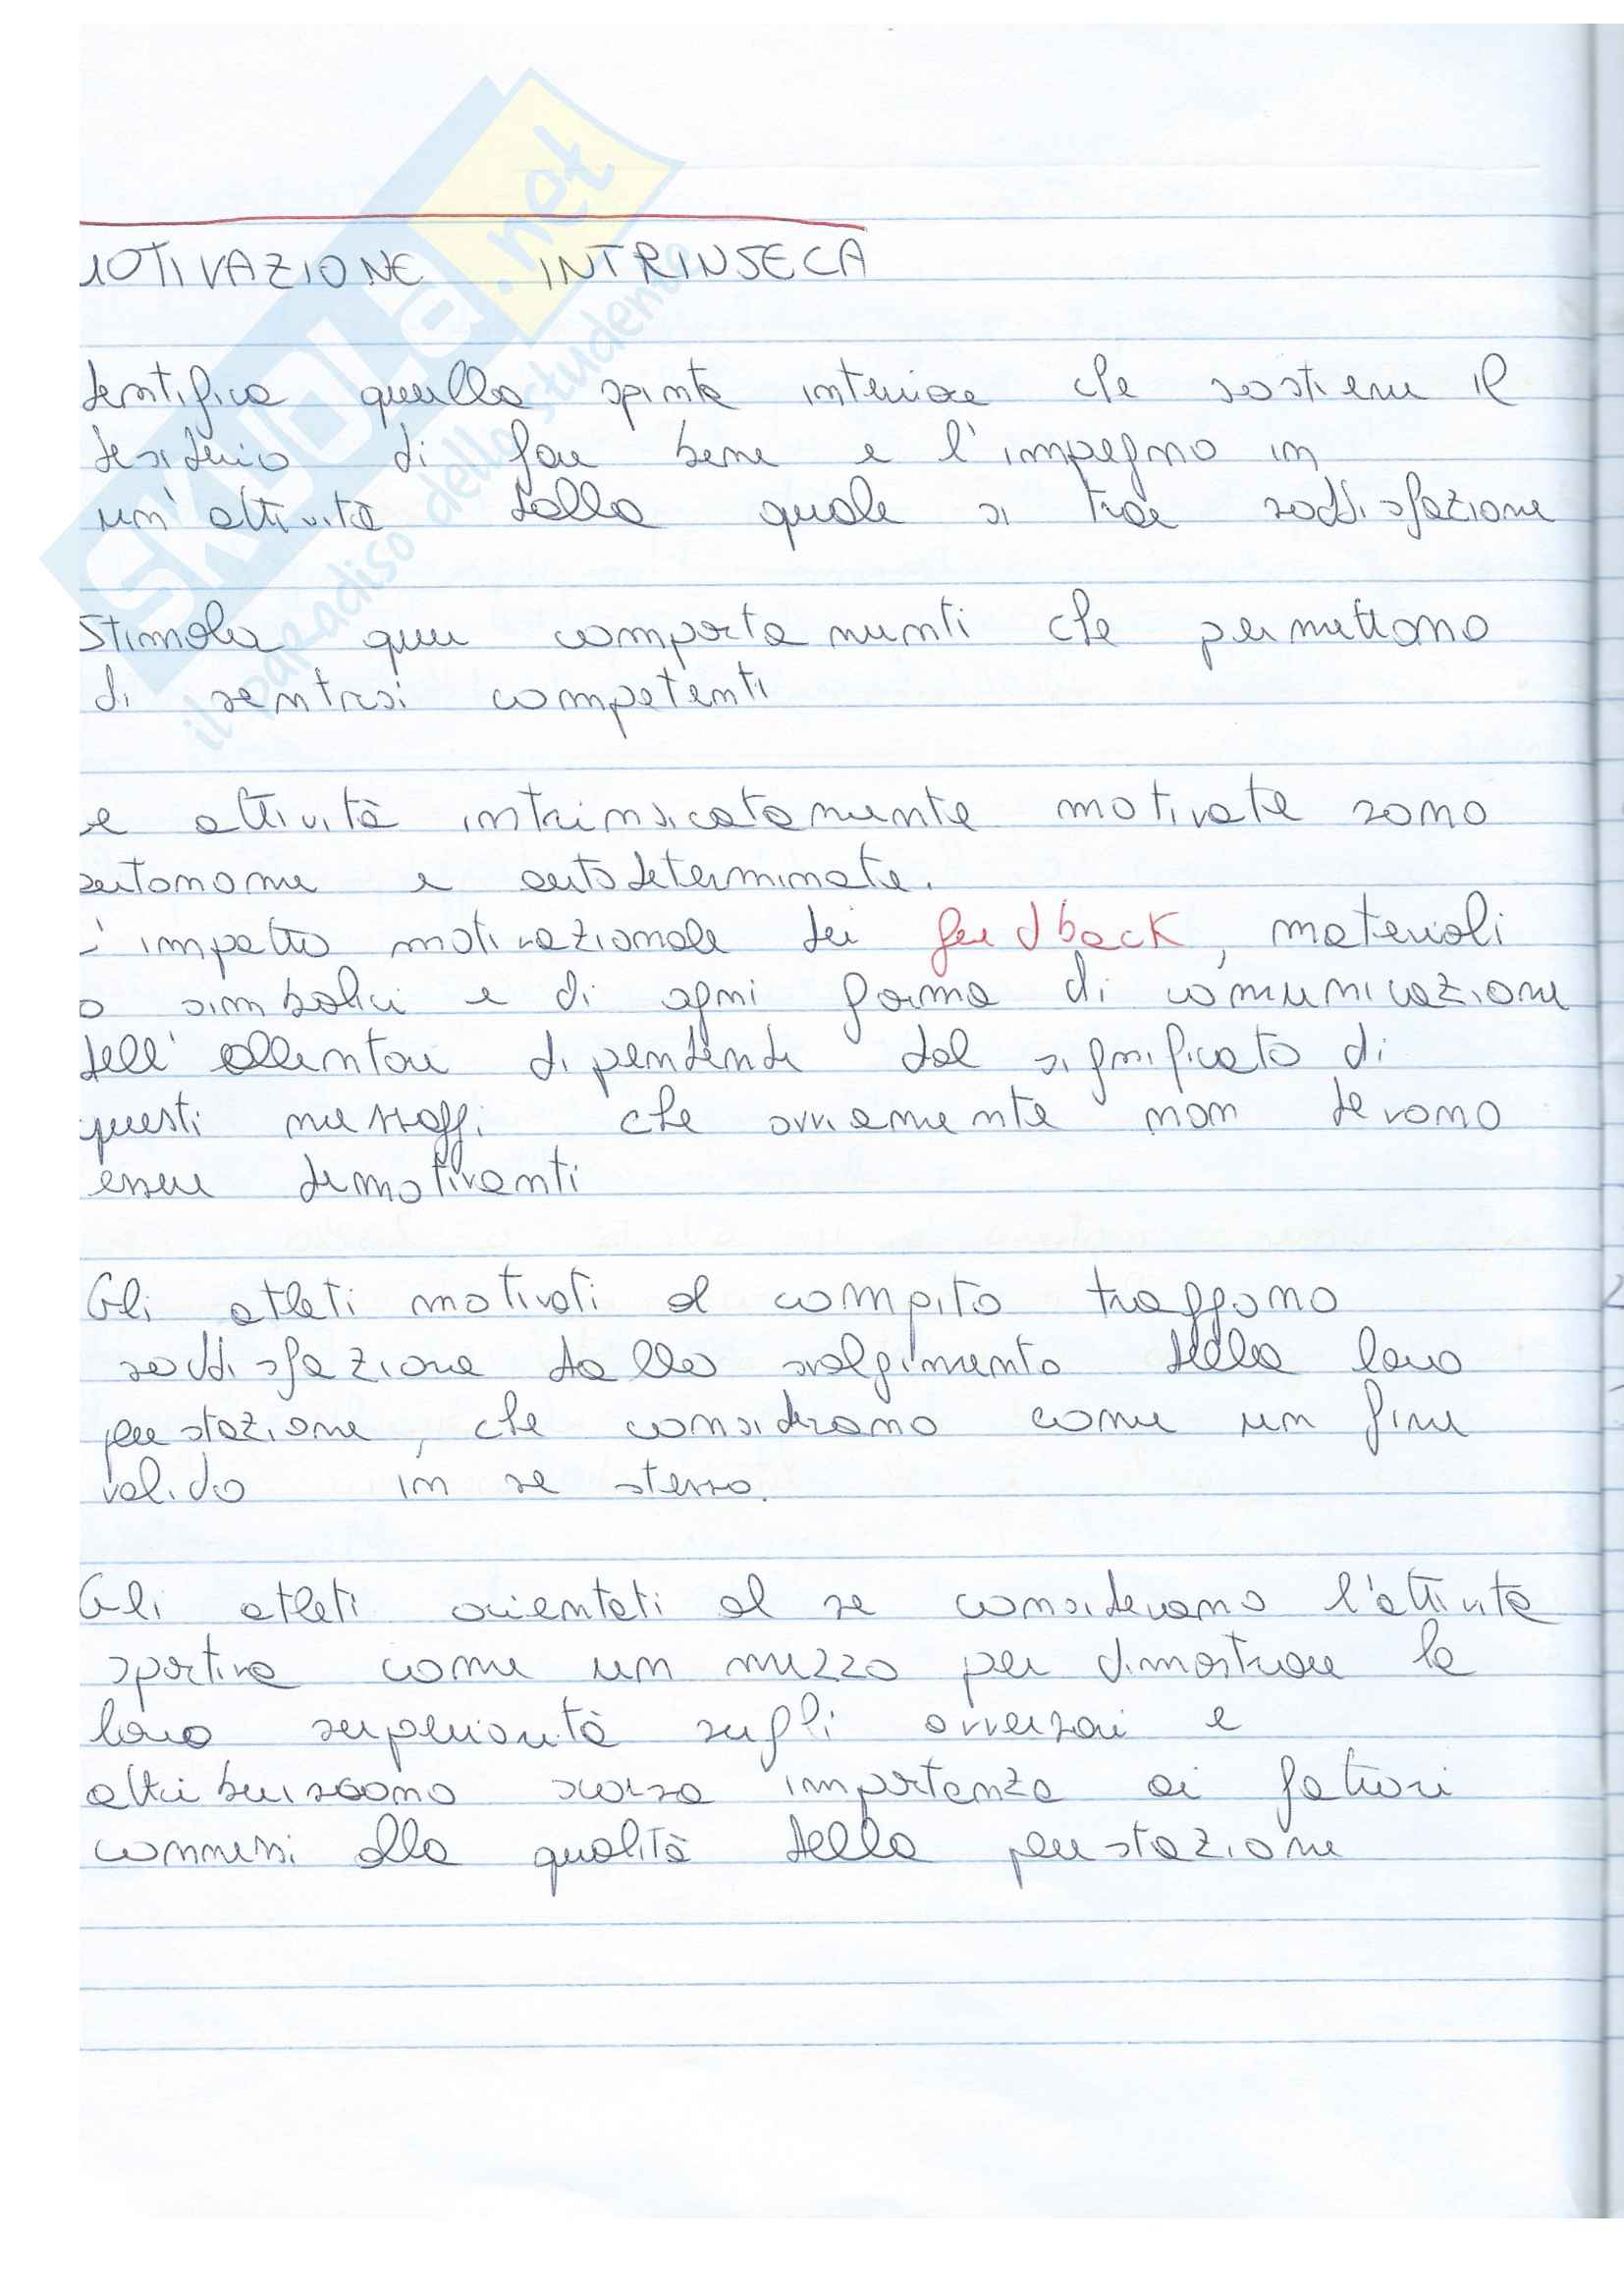 MOTIVAZIONE INTRINSECA
dentifica quella spinta interiore che sostiene il
desiderio di fare bene e l'impegno in
un'attività dalla quale si trae soddisfazione
Stimola quei comportamenti che permettono
di sentirsi competenti
e attività intrinsicatamente motivate sono
autonome e autodeterminate.
L'impatto motivazionale dei feedback, materiali
o simbolici e di ogni forma di comunicazione
dell'allentore dipendende dal significato di
questi messaggi che ovviamente non devono
essere demotivanti
Gli atleti motivati al compito traggono
soddisfazione dallo svolgimento della loro
prestazione, che considerano come un fine
valido in se stesso.
Gli atleti orientati al se considerano l'attività
sportiva come un mezzo per dimostrare la
loro superiorità sugli avversari e
attribuiscono scarsa importanza ai fattori
connessi alla qualità della prestazione
SKUOLA.net
il paradiso dello studente